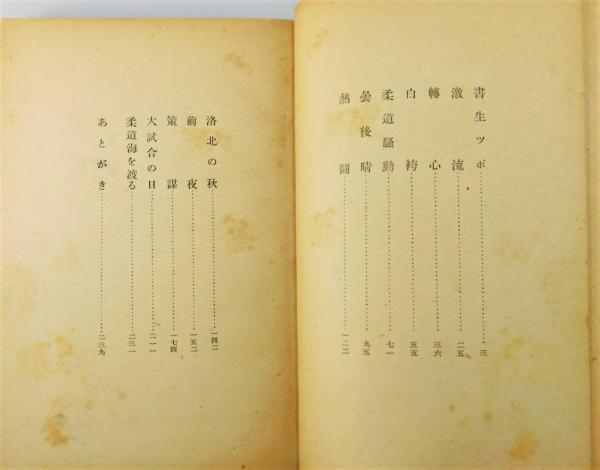 書生ツポ……………三
激流……………二五
轉心……………三六
白袴……………五五
柔道騒動……………七一
曇後晴……………九五
熱鬪……………一二二
洛北の秋……………一四二
前夜……………一五二
策謀……………一七四
大試合の日……………二一一
柔道海を渡る……………二三一
あとがき……………二三九